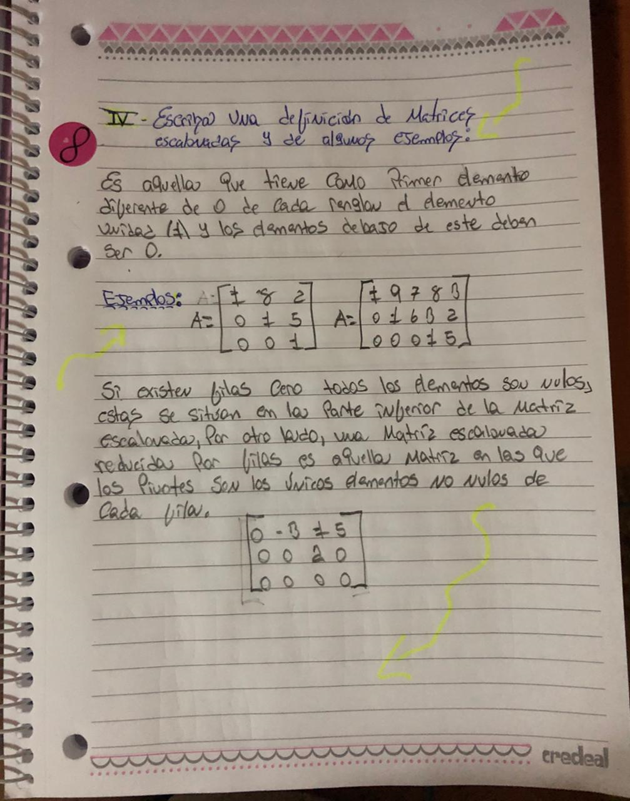 8
IV- Escriba una definición de Matrices
escalonadas y de algunos ejemplos:
Es aquella que tiene como Primer elemento
diferente de 0 de cada renglon el elemento
unidad (1) y los elementos debajo de este deben
ser 0.
Ejemplos: A=
A= [1 8 2] A= [1 9 7 8 3]
[0 1 5] [0 1 6 3 2]
[0 0 1] [0 0 0 1 5]
Si existen filas cero todos los elementos son nulos,
estas se situan en la parte inferior de la Matriz
escalonada, Por otro lado, una Matriz escalonada
reducida Por filas es aquella Matriz en las que
los Pivotes son los únicos elementos no nulos de
cada fila.
[0 -3 1 5]
[0 0 2 0]
[0 0 0 0]
credeal